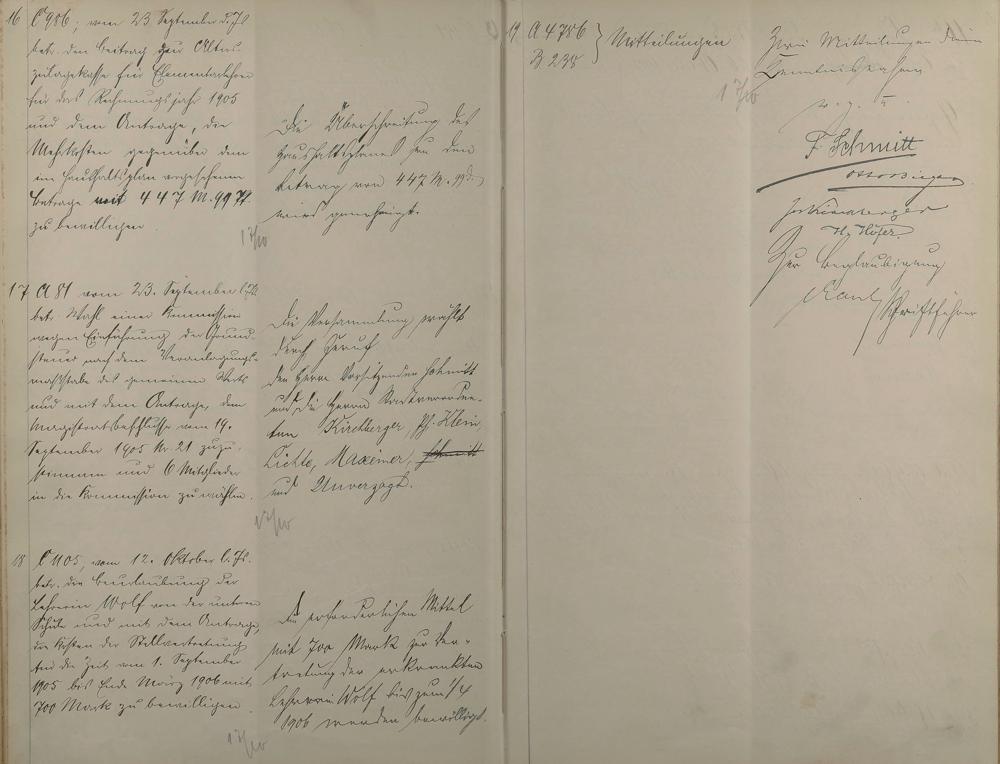 16 C 986, vom 23 September d. Js
betr. den Beitrag zur Alters
zulagekasse für Elementarlehrer
für das Rechnungsjahr 1905
und dem Antrage, die
Mehrkosten gegenüber dem
im Haushaltsplan vorgesehenen
Betrage mit 447 M. 99 Pf
zu bewilligen
Die Überschreitung des
Haushaltsplanes um den
Betrag von 447 M. 99 Pf.
wird genehmigt.
17/10
17 A 81 vom 23. September l. Js
betr. Wahl einer Kommission
wegen Einführung der Grund-
steuer nach dem Veranlagungs-
maßstabe des gemeinen Werts
und mit dem Antrage, dem
Magistratsbeschlusse vom 19.
September 1905 Nr. 21 zuzu-
stimmen und 6 Mitglieder
in die Kommission zu wählen.
Die Versammlung wählt
durch Zuruf
den Herrn Vorsitzenden Schmitt
und die Herrn Stadtverordne-
ten Kirchberger, Ph. Klein,
Lichte, Maximer, Schmitt
und Unverzagt.
17/10
18 C 1105, vom 12. Oktober l. Js.
betr. die Beurlaubung der
Lehrerin Wolf von der unteren
Schule und mit dem Antrage,
die Kosten der Stellvertretung
für die Zeit vom 1. September
1905 bis Ende März 1906 mit
700 Mark zu bewilligen.
Die erforderlichen Mittel
mit 700 Mark zur Ver-
tretung der erkrankten
Lehrerin Wolf bis zum 1/4
1906 werden bewilligt.
17/10
19 A 4786
B. 235
Mitteilungen
17/10
Zwei Mitteilungen
Kenntnisnahme
v. g. u.
F. Schmitt
Kirchberger
H. Höfer
Zur Beglaubigung
Schriftführer